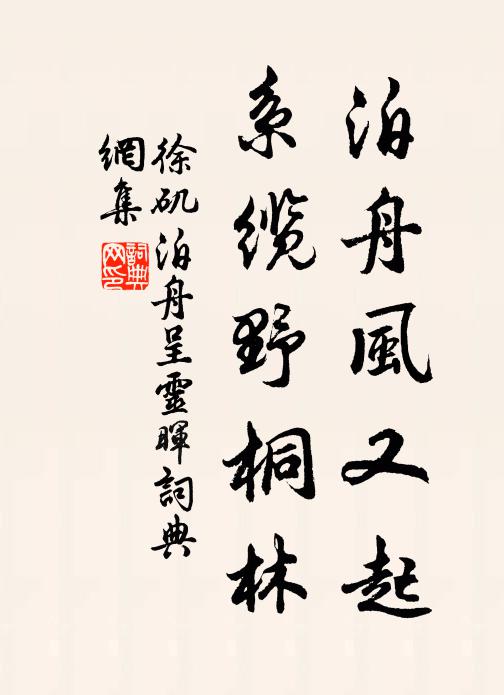 泊舟風又起
系纜野桐林
徐矶泊舟呈靈暉詞典
網集
詞典
网印